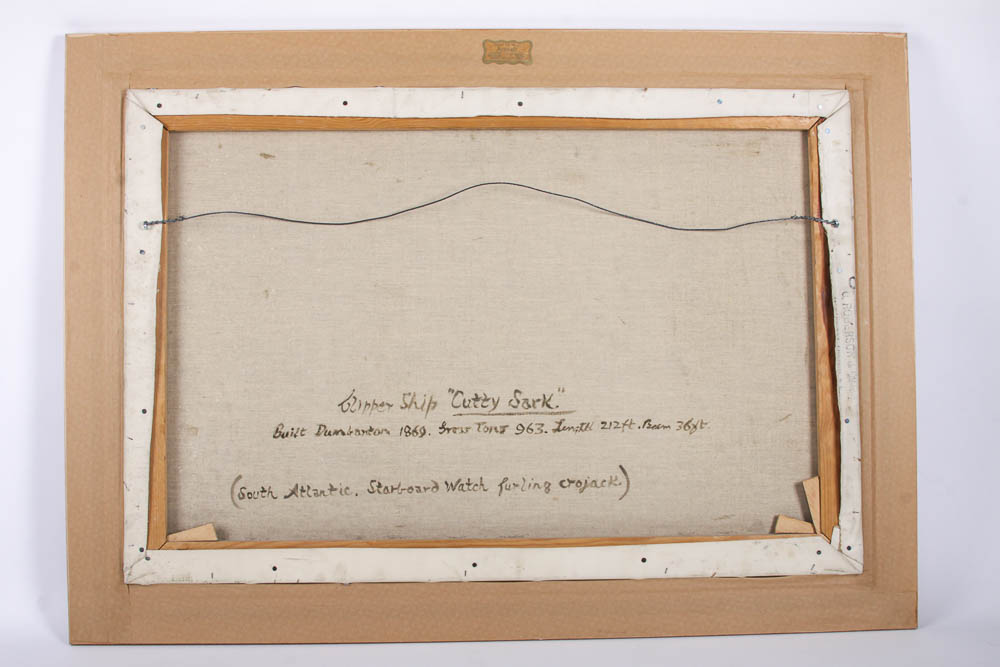 Clipper Ship "Cutty Sark."
Built Dumbarton 1869. Gross Tons 963. Length 212ft. Beam 36ft.
(South Atlantic. Starboard Watch furling crojack.)